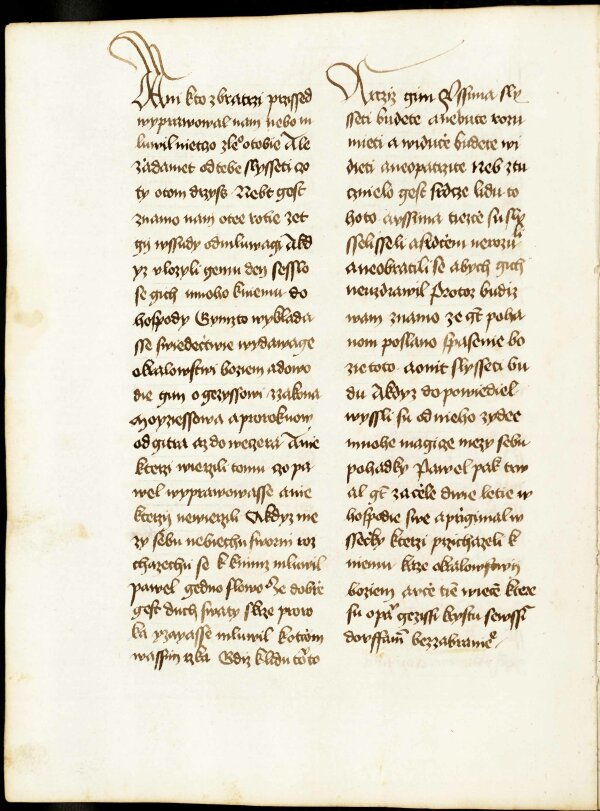 Ani kto z bratrzi przissed
wyprawowal nam nebo m
luwil nietczo zleº o tobie Ale
zadamet od tebe slysseti czo
ty o tom drzyss Nebt gest
znamo nam o tee rotie zet
gij wssudy odmluwagi A kd
yz vlozyli gemu den sesslo
se gich mnoho k niemu do
hospody Gymzto wyklada
sse swiedectwie wydawage
o kralowstwi boziem a dowo
die gim o gezyssowi z zakona
moyziessowa a prorokuow
od gitra az do weczera A nie
kterzi wierzili tomu czo pa
wel wyprawowasse a nie
kterzij newierzili A kdyz me
zy sebu nebiechu sworni roz
chazechu se k knimz mluwil
pawel gedno slowo Ze dobrze
gest duch swaty skrze proro
ka yzayasse mluwil k otcom
wassim rzka Gdiz k lidu tomuto
Rcziz gim Vssima sly
sseti budete a nebudete rozu
mieti a widuce budete wi
dieti a neopatrzite Neb ztu
cznielo gest srdcze lidu to
hoto a vssima tiezce su sly
sselisseli a srdcem nerozu
a neobratili se abych gich
neuzdrawil Protoz budiz
wam znamo ze gt poha
nom poslano spasenie bo
zie toto a onit slysseti bu
du A kdyz to powiediel
wyssli su od nieho zydee
mnohe magicze mezy sebu
pohadky Pawel pak trw
al gt za cele dwie letie w
hospodie swe a prigimal w
ssecky kterzi przichazeli k
niemu kaze o kralowstwij
boziem a vcze tiem wiecem ktere
su o panu gezissi krystu se wssi
dorffanim bez zabranieº